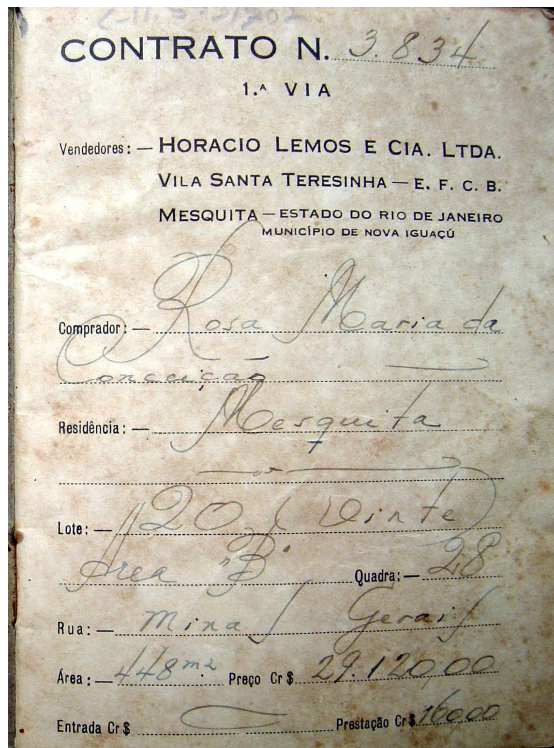 CONTRATO N. 3.834
1.ᴬ VIA
Vendedores: — HORACIO LEMOS E CIA. LTDA.
VILA SANTA TERESINHA — E. F. C. B.
MESQUITA — ESTADO DO RIO DE JANEIRO
MUNICÍPIO DE NOVA IGUAÇÚ
Comprador: — Rosa Maria da
Conceição
Residência: — Mesquita
Lote: — 20 (Vinte)
Área "B" Quadra: — 28
Rua: — Minas Gerais
Área: — 448 m2 Preço Cr$ 29.120,00
Entrada Cr$ Prestação Cr$ 160,00